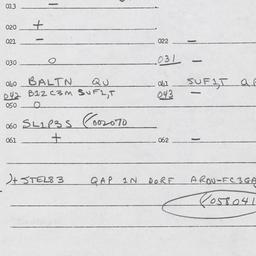 013 —
020 +
021 — 022 —
030 O 031 —
060 BALTN QU 061 SUF1,T
042 B12C3M SUF1,T 043 —
050 O
060 SL1P3S (002070
061 + 062 —
STEL83 QAP IN DORF ARDU-FC3GA
(058041